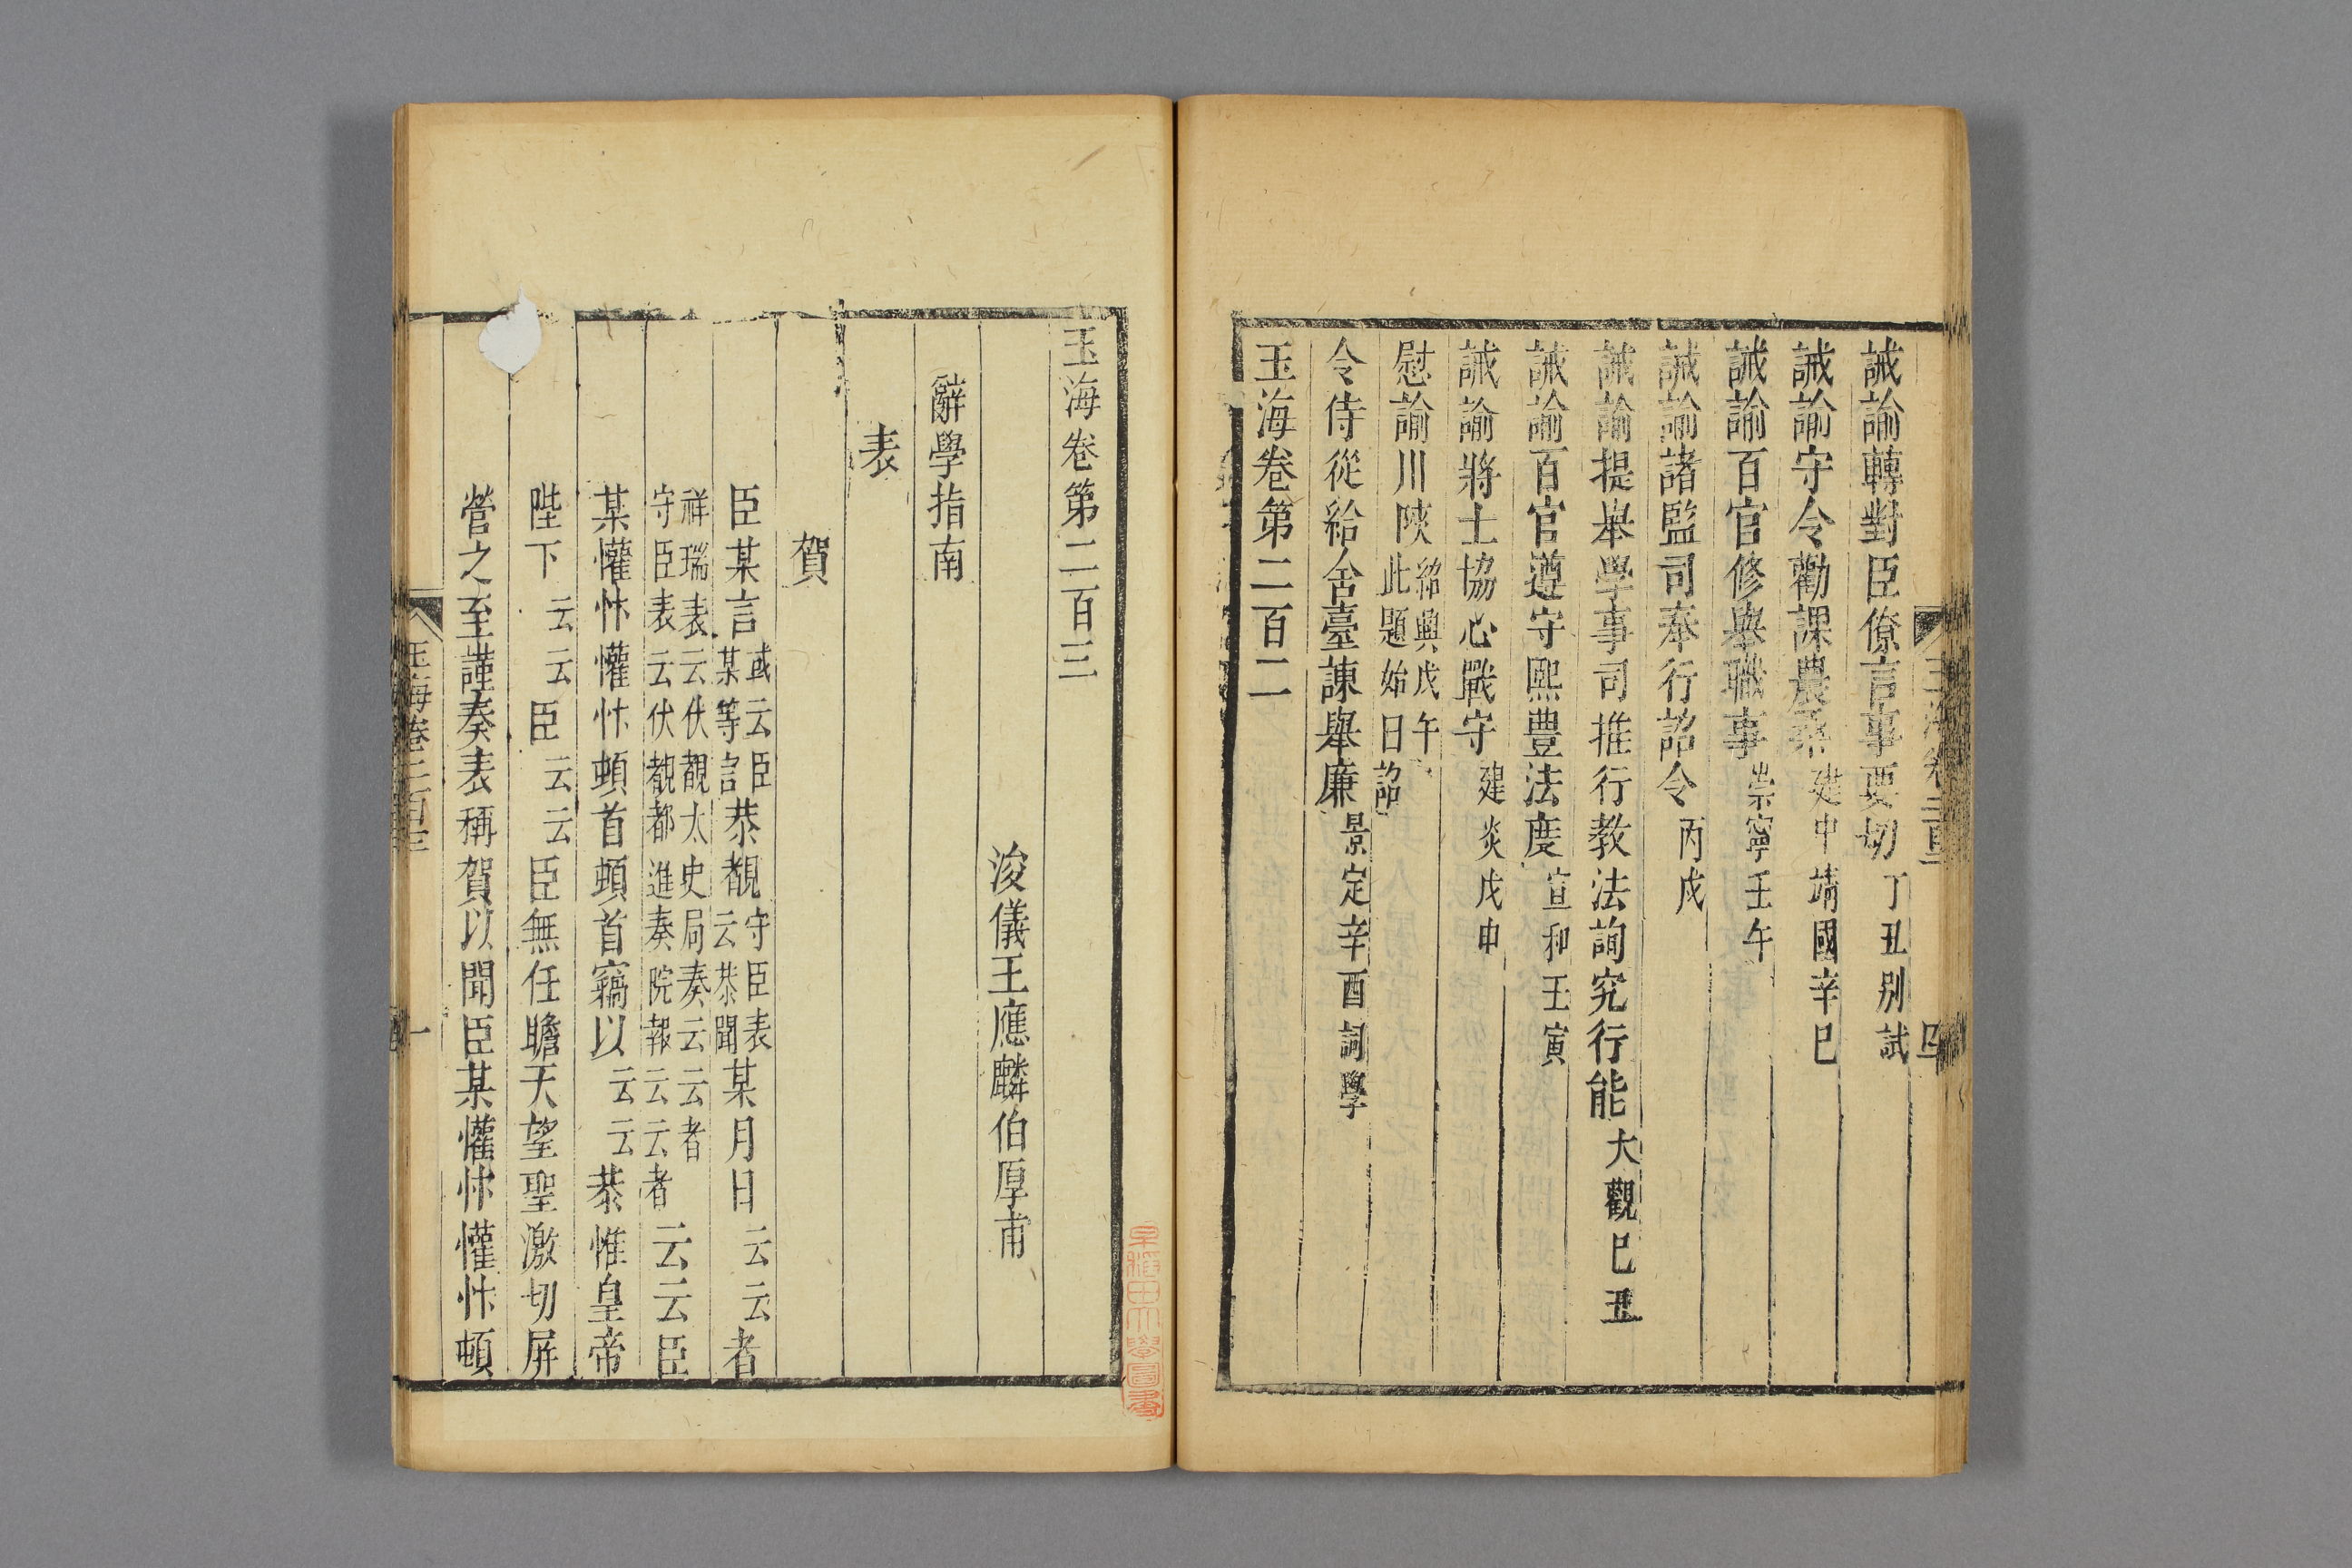 誡諭轉對臣僚言事要切丁丑別試
誡諭守令勸課農桑建中靖國辛巳
誡諭百官修舉職事崇寧壬午
誡諭諸監司奉行詔令丙戌
誡諭提舉學事司推行教法詢究行能大觀己丑
誡諭百官遵守熙豊法度宣和壬寅
誡諭將士協心戰守建炎戊申
慰諭川陝紹興戊午此題始曰詔
令侍從給舍臺諫舉廉景定辛酉詞學
玉海卷第二百二
玉海卷第二百三
浚儀王應麟伯厚甫
辭學指南
表
賀
臣某言或云臣某等言恭覩守臣表云恭聞某月日云云者
祥瑞表云伏覩太史局奏云云者守臣表云伏覩都進奏院報云云者云云臣
某懽忭懽忭頓首頓首竊以云云恭惟皇帝
陛下云云臣云云臣無任瞻天望聖激切屏
營之至謹奏表稱賀以聞臣某懽忭懽忭頓
玉海卷二百三
一
早稻田大學圖書